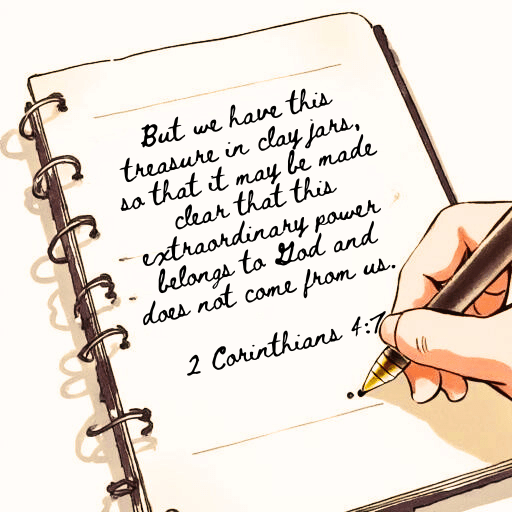 But we have this
treasure in clay jars,
so that it may be made
clear that this
extraordinary power
belongs to God and
does not come from us.
2 Corinthians 4:7